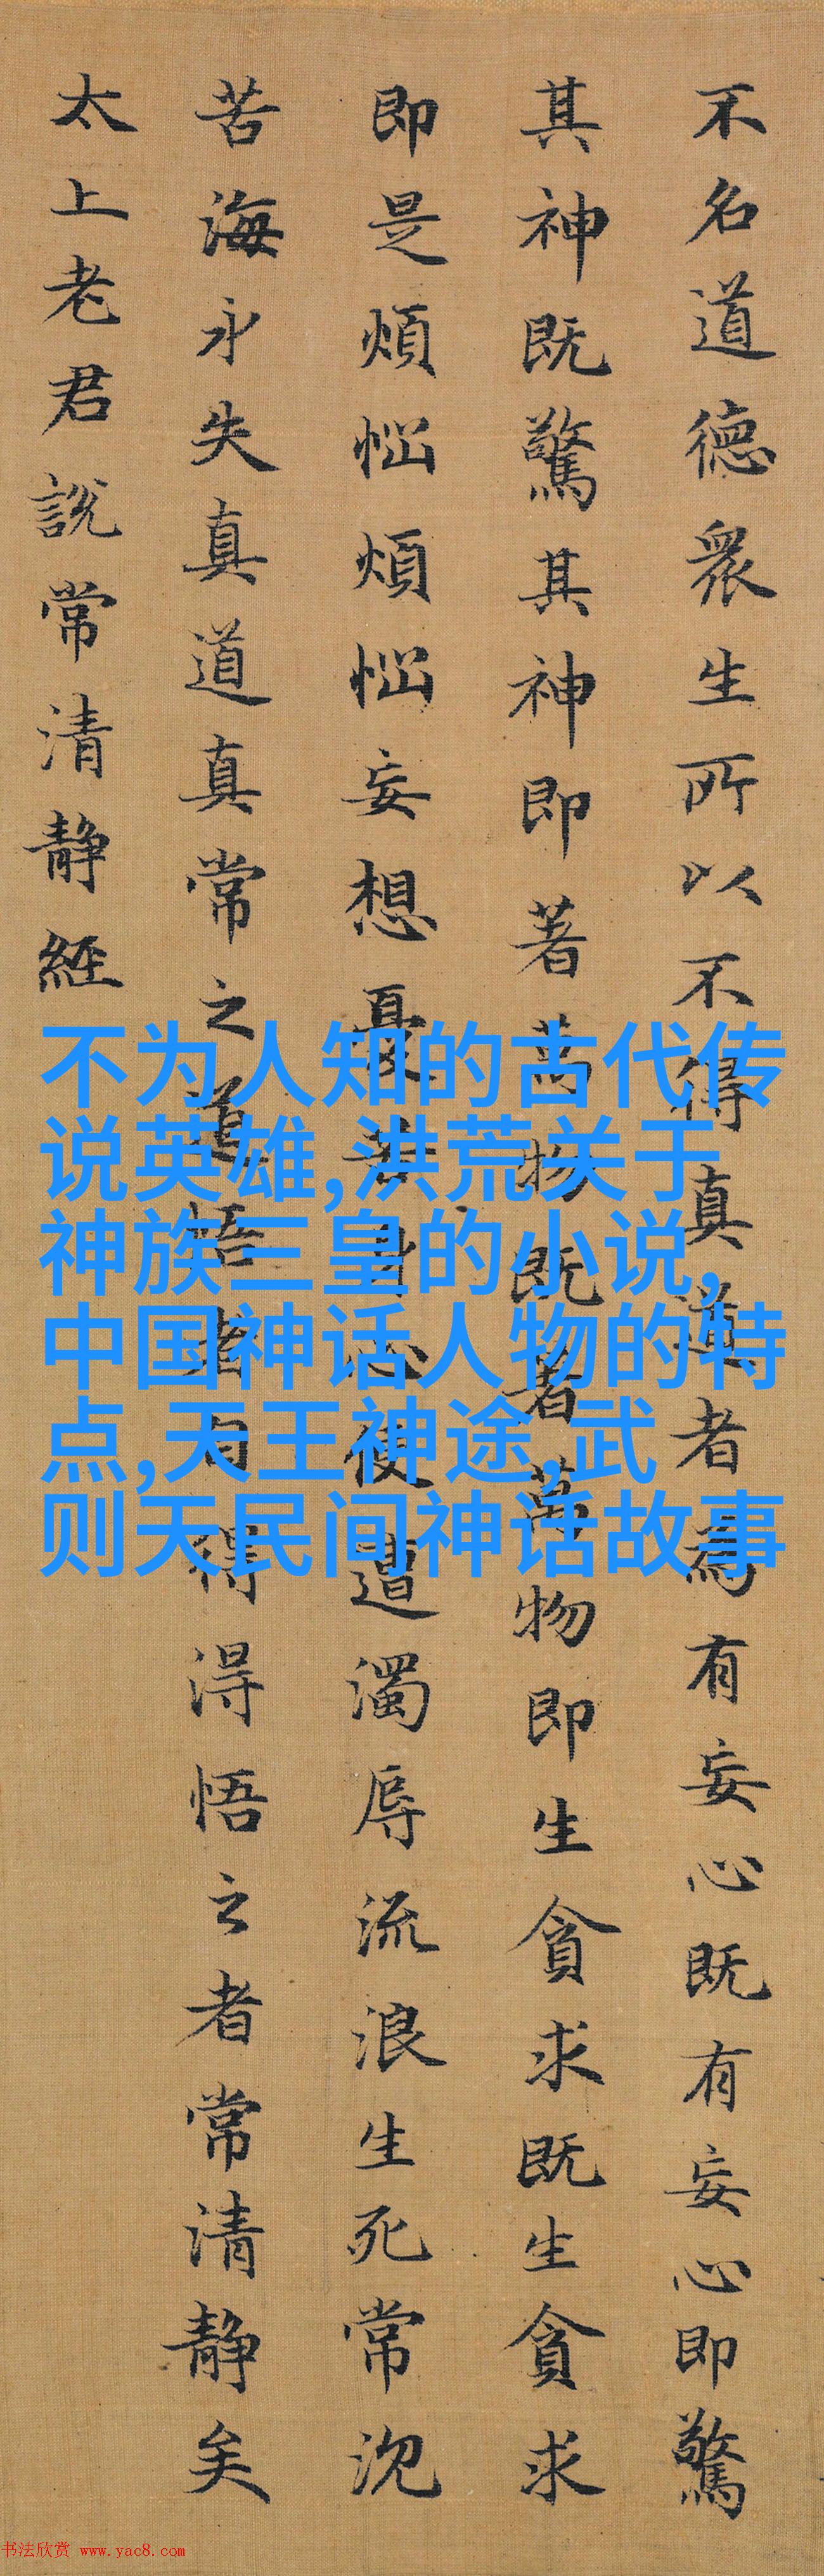 不名道德衆生所以不得真道者為有妄心既有妄心即驚
其神既驚其神即著萬物既著萬物即生貪求既生貪求
即是煩惱煩惱妄想憂苦身心便遭濁辱流浪生死常沉
苦海永失真道真常之道悟者自得得悟之者常清静矣
太上老君說常清静經
不为人知的古代传
说英雄,洪荒关于
神族三皇的小说,
中国神话人物的特
点,天王神途,武
则天民间神话故事
书法欣赏 www.yac8.com